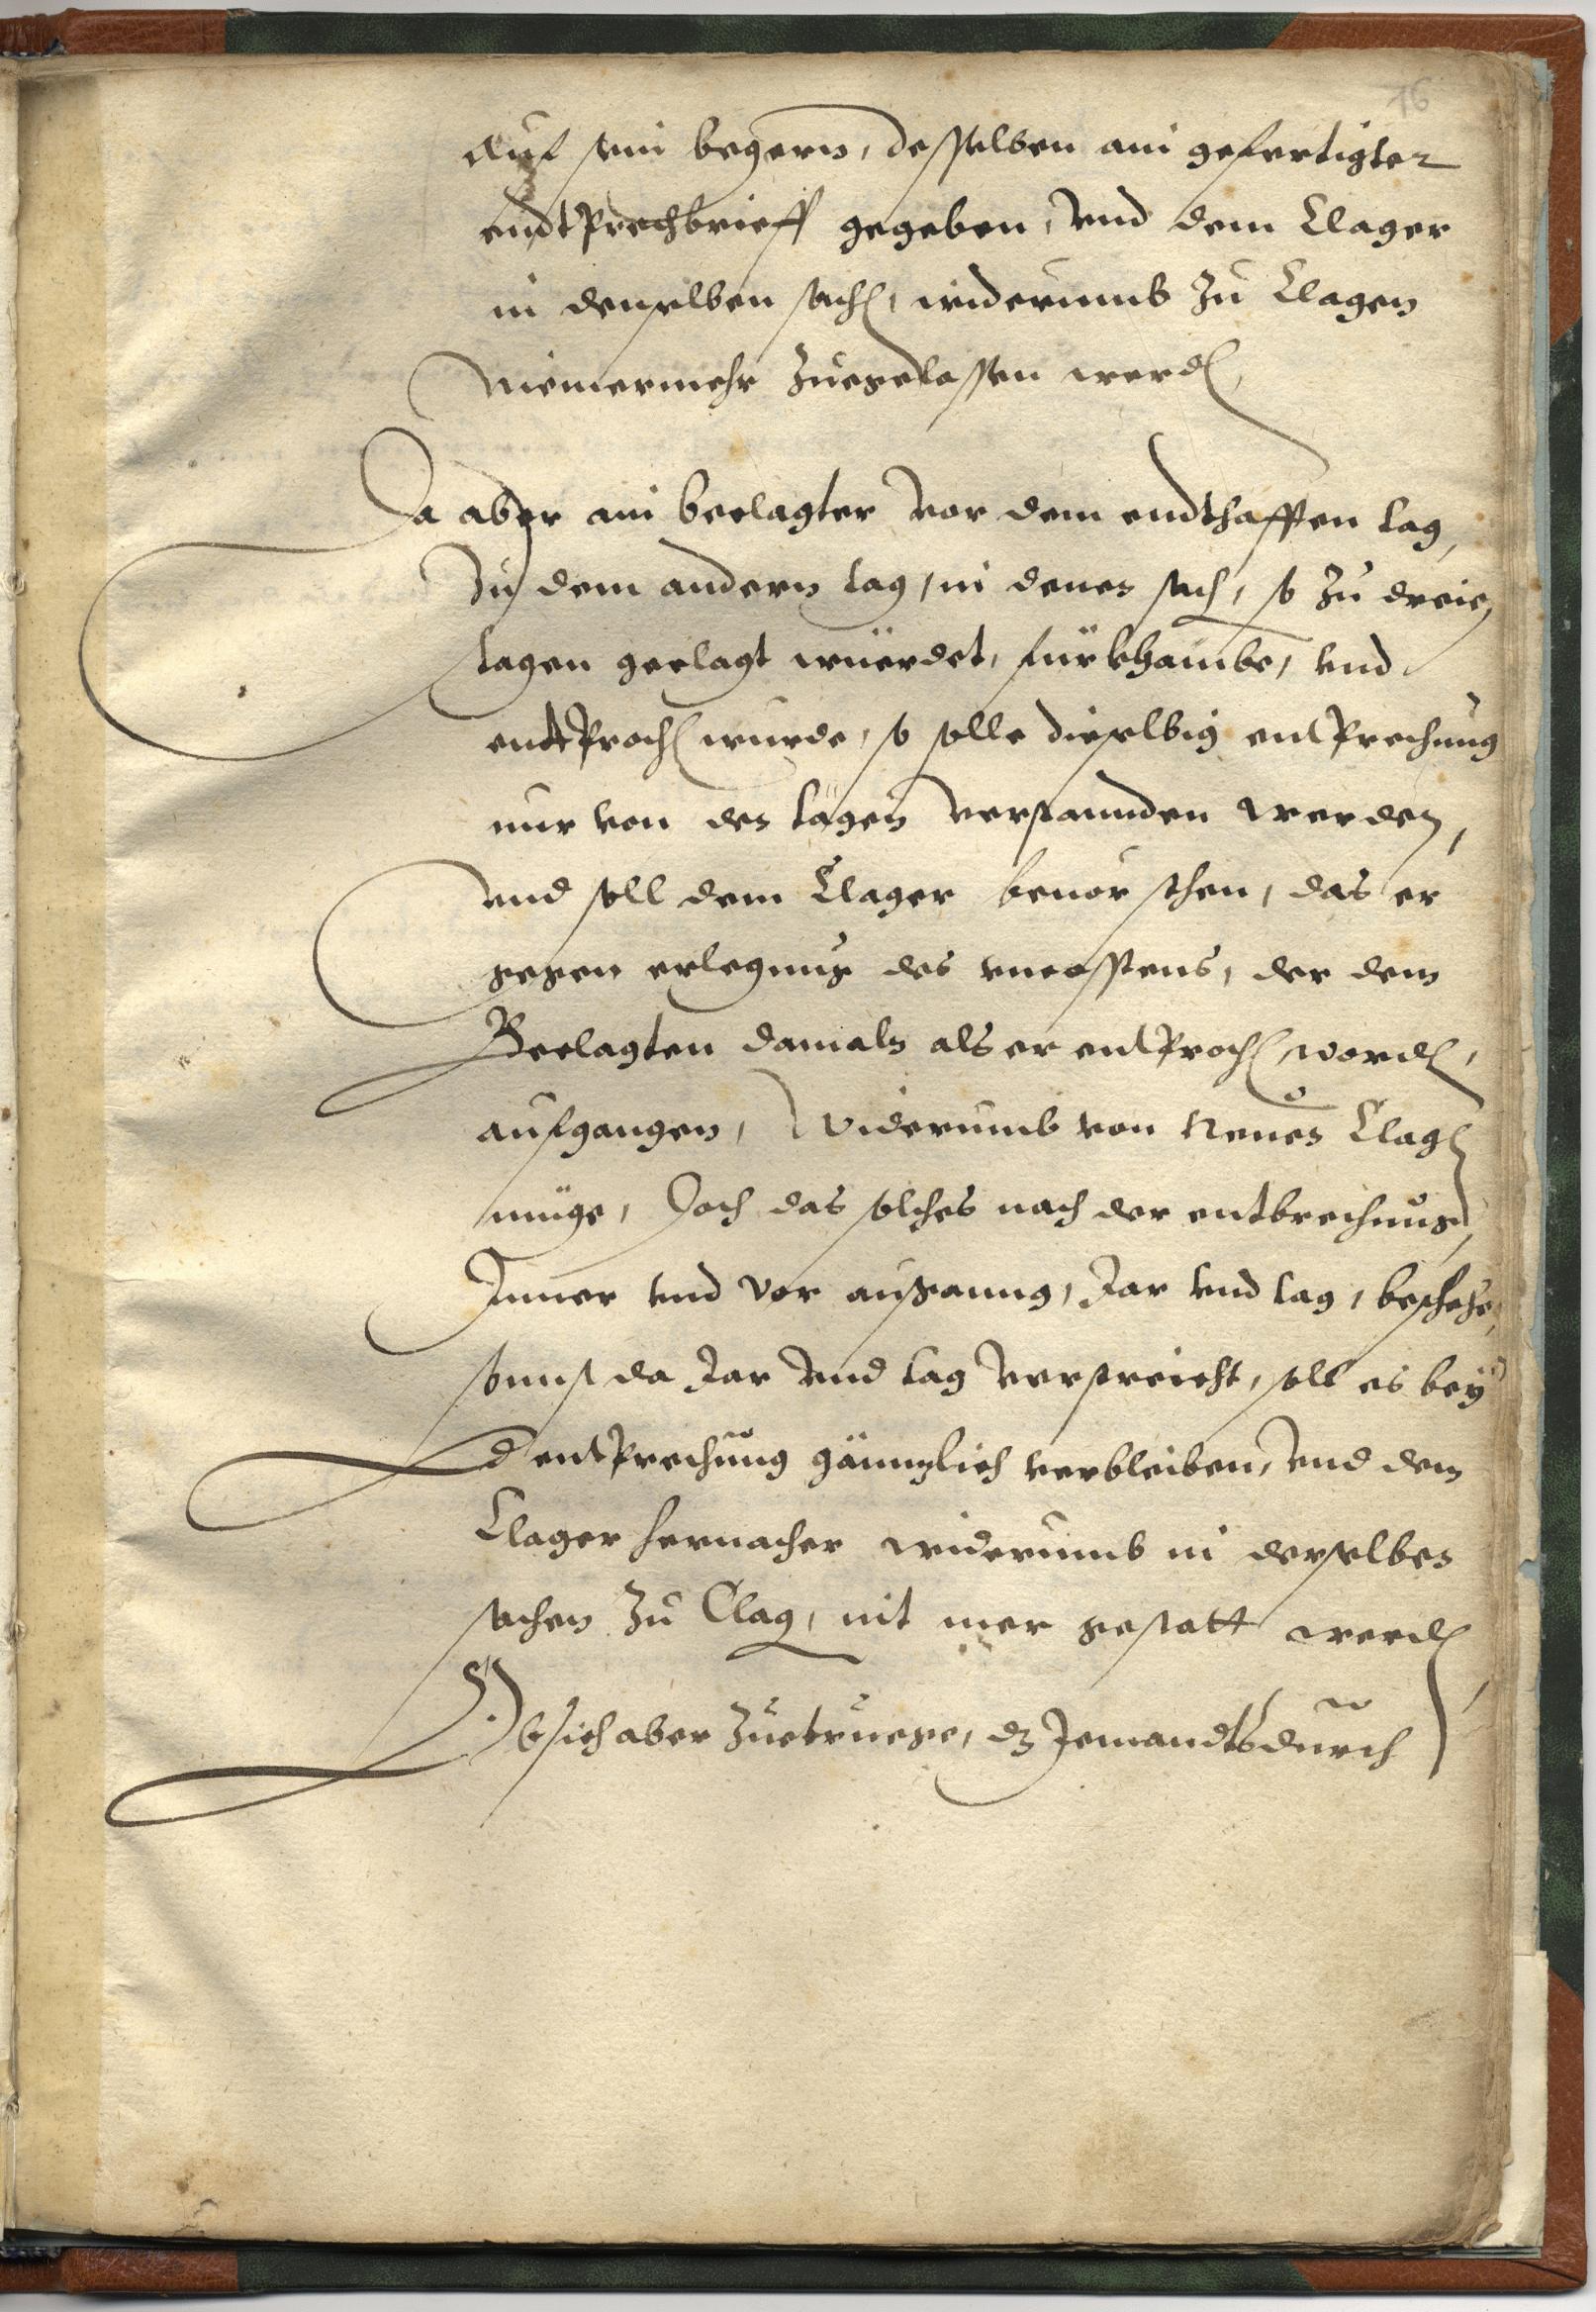 16
auf sein begern, desselben ain gefertigter
endtsprechbrieff gegeben, vnd dem Clager
in denselben sachen, widerumb zu Clagen
niemermehr zuegelassen werden,
Da aber ain beclagter vor dem endthafften tag,
zu dem andern tag, in denen sachen, so zu dreien
tagen geclagt würdet, fürkhämbe, vnd
entsprochen wurde, so solle dieselbig entsprechung
nur von den tägen verstannden werden,
vnd soll dem Clager beuor stehen, das er
gegen erlegung des vncosstens, der dem
Beclagten damaln als er entsprochen worden,
aufgangen, Widerumb von Neuen Clagen
müge, Doch das solches nach der entbrechung,
Inner vnd vor ausgang, Jar vnd tag, beschehe,
sonnst da Jar vnd tag verstreicht, soll es bey
der entsprechung gänntzlich verbleiben, vnd dem
Clager hernacher widerumb in derselben
sachen zu Clagen, nit mer gestatt werden
Ob sich aber zuetruege, dz Jemandts durch